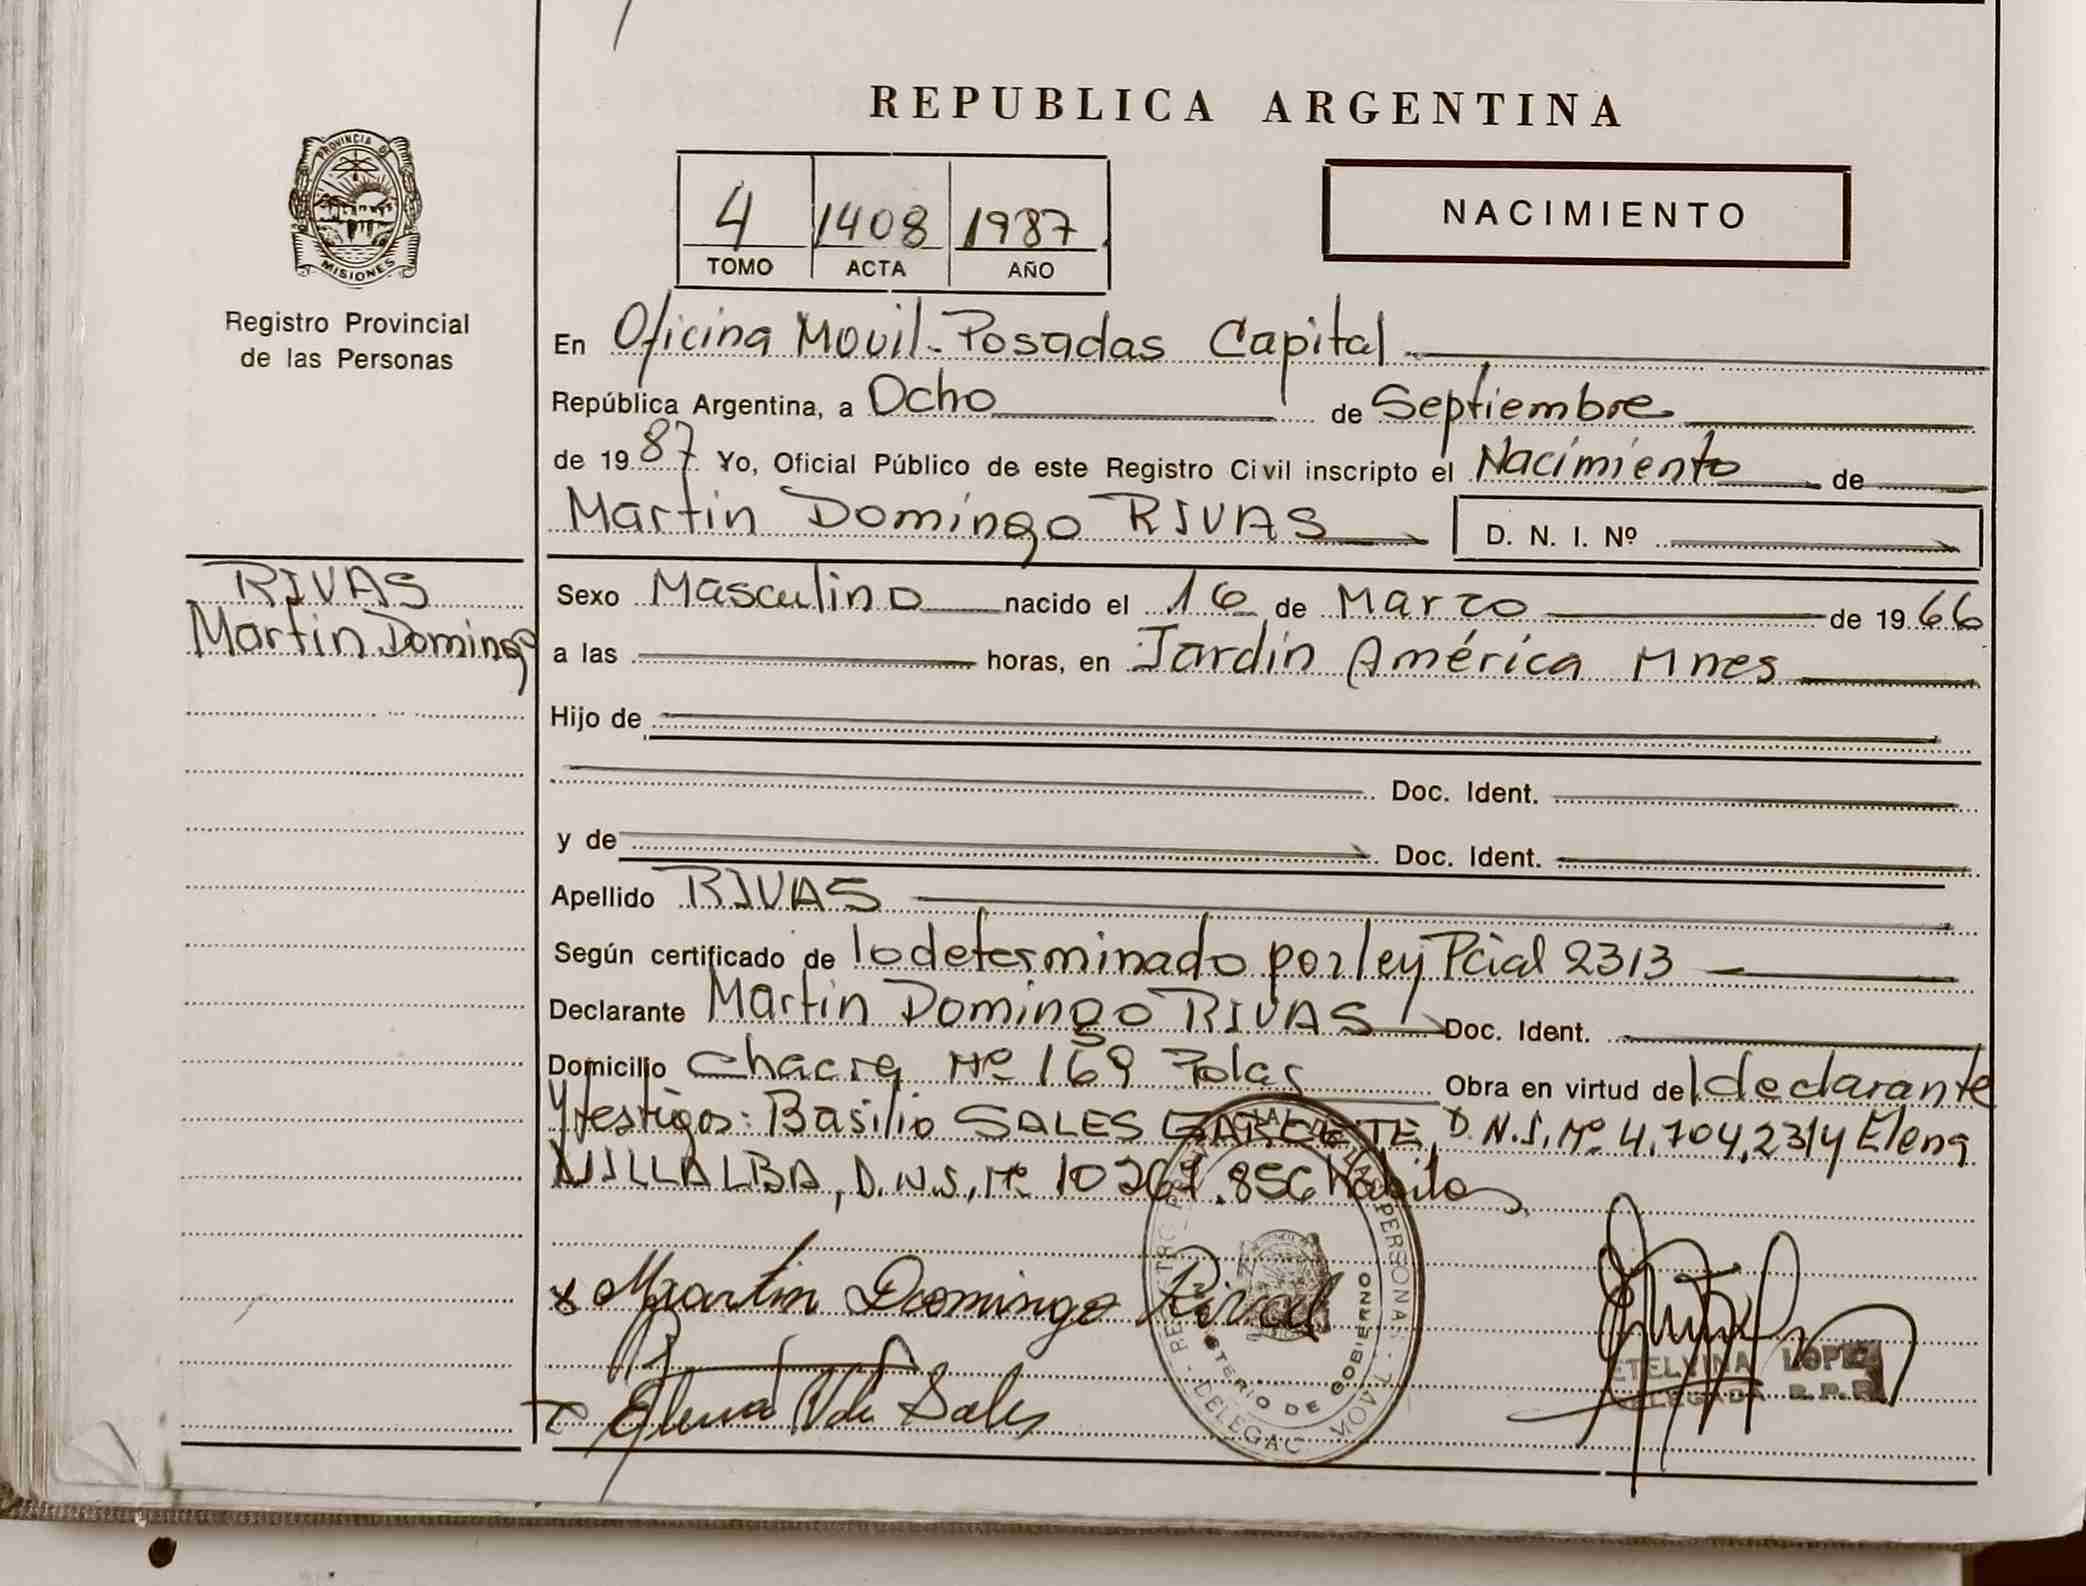 REPUBLICA ARGENTINA
PROVINCIA D
MISIONES
Registro Provincial
de las Personas
4 1408 1987
TOMO ACTA AÑO
NACIMIENTO
En Oficina Movil-Posadas Capital
República Argentina, a Ocho de Septiembre
de 19 87 Yo, Oficial Público de este Registro Civil inscripto el Nacimiento de
Martin Domingo RIVAS D. N. I. Nº
RIVAS
Martin Domingo
Sexo Masculino nacido el 16 de Marzo de 19 66
a las horas, en Jardín América Mnes
Hijo de
Doc. Ident.
y de Doc. Ident.
Apellido RIVAS
Según certificado de lo determinado por ley Pcial 2313
Declarante Martin Domingo RIVAS Doc. Ident.
Domicilio Chacra Nº 169 Pdas Obra en virtud de l declarante
y testigos: Basilio SALES GARCETE D.N.I. Nº 4.704.231 y Elena
VILLALBA, D.N.I. Nº 10267.856 Habiles
x Martin Domingo Rivas
Elena V de Sales
MINISTERIO DE GOBIERNO
DELEGAC MOVIL
ETELVINA LOPEZ
DELEGADA R.P.P.